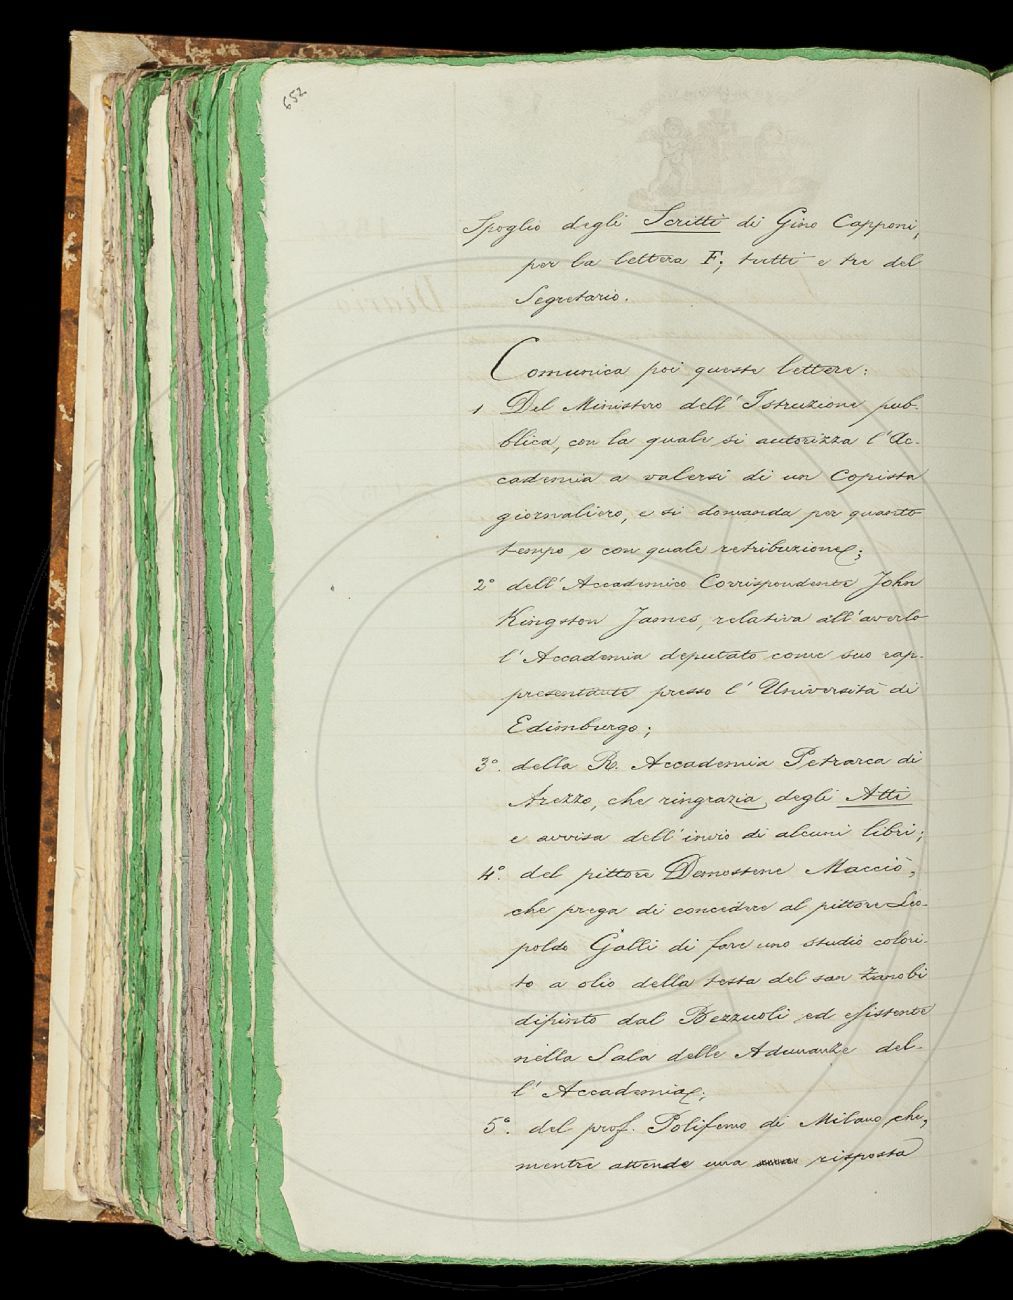 652
Spoglio degli Scritti di Gino Capponi,
per la lettera F; tutti e tre del
Segretario.
Comunica poi queste lettere:
1 Del Ministero dell'Istruzione pub-
blica, con la quale si autorizza l'Ac-
cademia a valersi di un Copista
giornaliero, e si domanda per quanto
tempo e con quale retribuzione;
2° dell'Accademico Corrispondente John
Kingston James, relativa all'averlo
l'Accademia deputato come suo rap-
presentante presso l'Università di
Edimburgo;
3°. della R. Accademia Petrarca di
Arezzo, che ringrazia degli Atti
e avvisa dell'invio di alcuni libri;
4°. del pittore Demostene Macciò,
che prega di concedere al pittore Leo-
poldo Galli di fare uno studio colori-
to a olio della testa del san Zanobi
dipinto dal Bezzuoli ed esistente
nella Sala delle Adunanze del-
l'Accademia;
5°. del prof. Polifemo di Milano che,
mentre attende una risposta